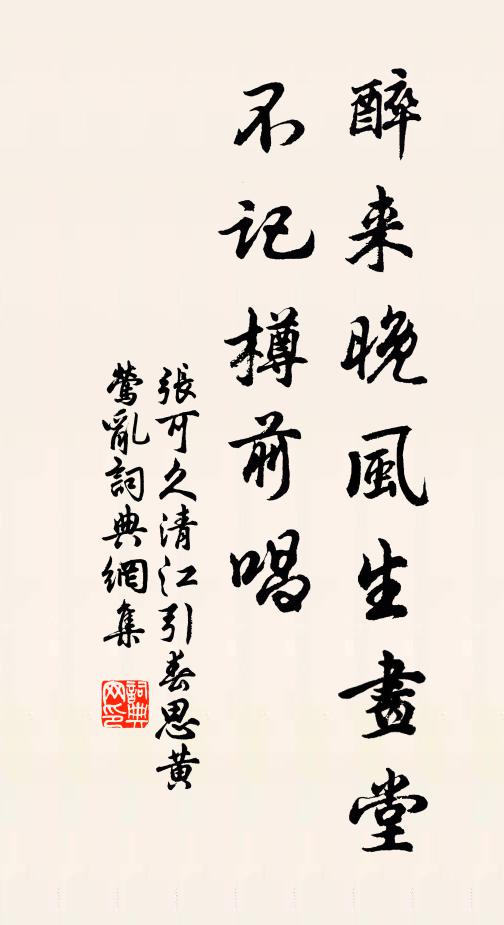 醉来晚風生畫堂
不记樽前唱
張可久清江引春思黄
鶯亂詞典網集
詞典网印